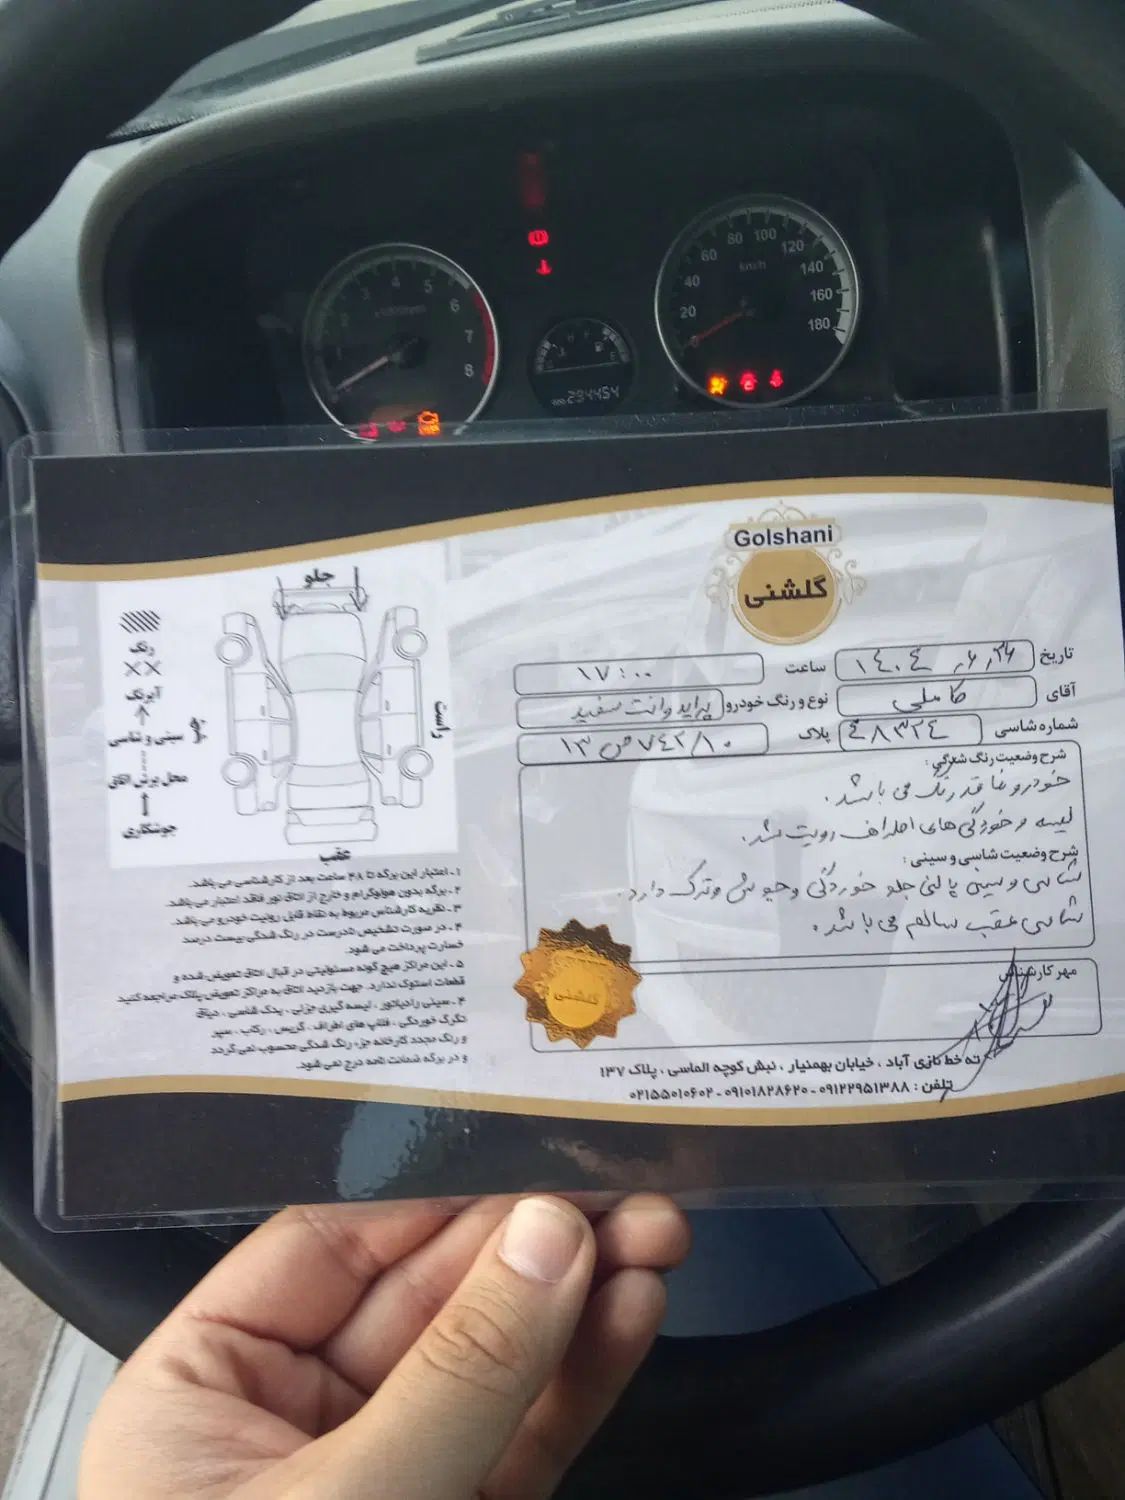 3
4
5
6
7
8
x1000rpm
H
E
294454
20
40
60
80
100
120
140
160
180
km/h
Golshani
گلشنی
تاریخ ۱۴۰۴ ٫۶٫۲۶
ساعت ۱۷:۰۰
آقای کاملی
نوع و رنگ خودرو پراید وانت سفید
شماره شاسی ۴۸۳۲۴
پلاک ۱۳ ص ۷۴۲/۱۰
شرح وضعیت رنگ شدگی:
خودرو فاقد رنگ می باشد.
لیسه و خوردگی های اطراف رویت شد.
شرح وضعیت شاسی و سینی:
شاسی و سینی پالنی جلو خوردگی و جوش و ترک دارد.
شاسی عقب سالم می باشد.
مهر کارشناس
گلشنی
جلو
راست
عقب
چپ
رنگ
××
آبرنگ
سینی و شاسی
محل برش اتاق
جوشکاری
۱ـ اعتبار این برگه تا ۴۸ ساعت بعد از کارشناسی می باشد.
۲ـ برگه بدون هولوگرام و خارج از اتاق نور فاقد اعتبار می باشد.
۳ـ نظریه کارشناس مربوط به نقاط قابل رویت خودرو می باشد.
۴ـ در صورت تشخیص نادرست در رنگ شدگی بیست درصد
خسارت پرداخت می شود.
۵ـ این مراکز هیچ گونه مسئولیتی در قبال اتاق تعویض شده و
قطعات استوک ندارد. جهت بازدید اتاق به مراکز تعویض پلاک مراجعه کنید
۶ـ سینی رادیاتور ، لیسه گیری جزئی ، یدک شاسی ، دیاق
تگرگ خوردگی ، فلاپ های اطراف ، گریس ، رکاب ، سپر
و رنگ مجدد کارخانه جزء رنگ شدگی محسوب نمی گردد
و در برگه ضمانت نامه درج نمی شود.
ته خط نازی آباد ، خیابان بهمنیار ، نبش کوچه الماسی ، پلاک ۱۳۷
تلفن : ۰۹۱۲۲۹۵۱۳۸۸ - ۰۹۱۰۱۸۲۸۶۲۰ - ۰۲۱۵۵۰۱۰۶۰۲